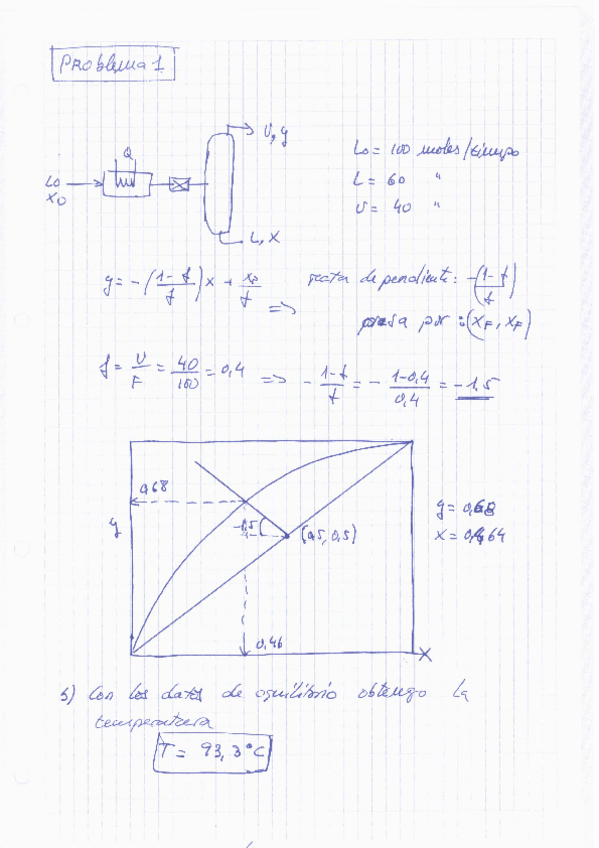 Problema 1
Q
V, y
Lo
X0
L, X
Lo = 100 moles/tiempo
L = 60 "
V = 40 "
y = -(1-f/f) x + xF/f =>
recta de pendiente: -(1-f/f)
pasa por : (xF, xF)
f = V/F = 40/100 = 0,4 => - 1-f/f = - 1-0,4/0,4 = -1,5
0,68
y
-1,5
(0,5, 0,5)
y = 0,68
x = 0,464
0,46
X
b) Con los datos de equilibrio obtengo la
temperatura
T = 93,3°C